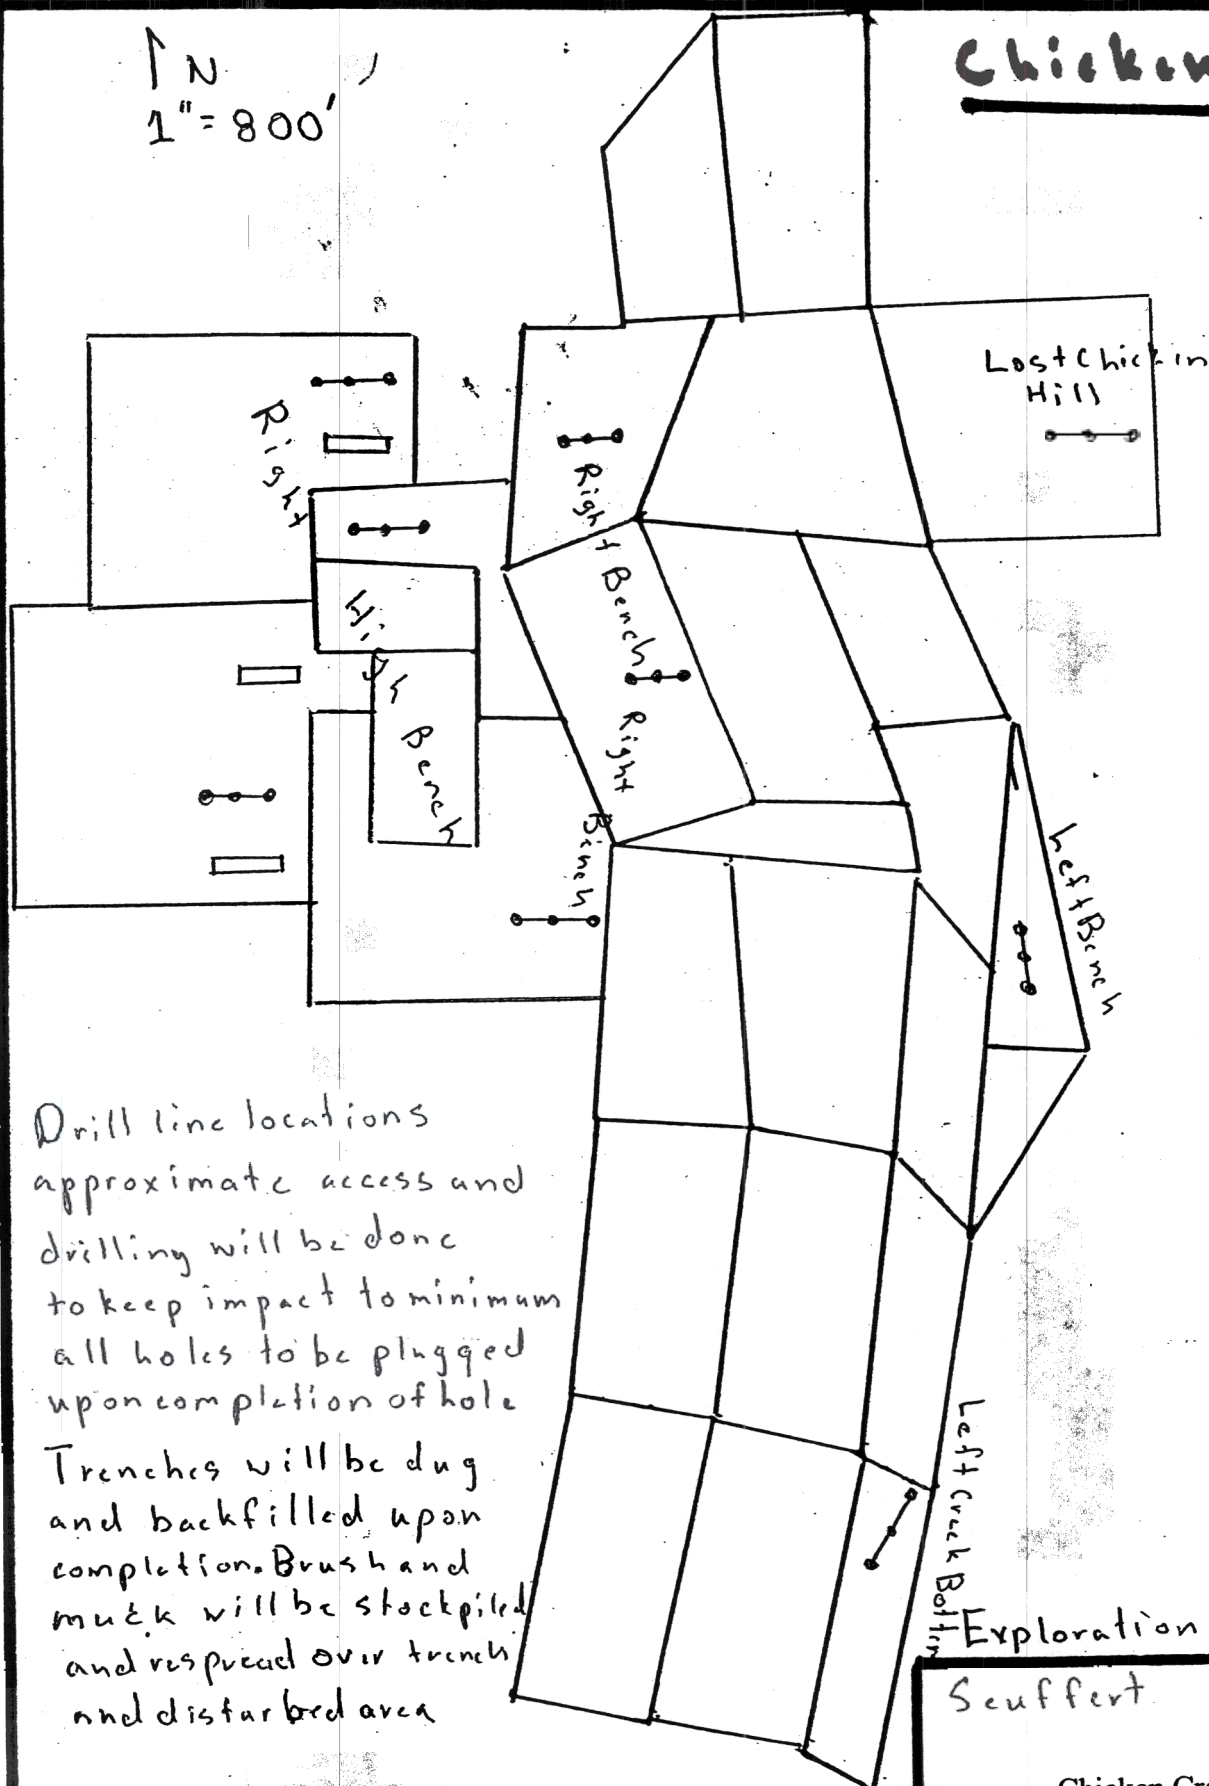 N
1"=800'
Chicken
Lost Chickin
Hill
Right
High
Bench
Right Bench
Right
Bench
Left Bench
Drill line locations
approximate access and
drilling will be done
to keep impact to minimum
all holes to be plugged
upon completion of hole
Trenches will be dug
and backfilled upon
completion. Brush and
muck will be stockpiled
and respread over trench
and disturbed area
Left Creek Bottom
Exploration
Seuffert
Chicken Cr